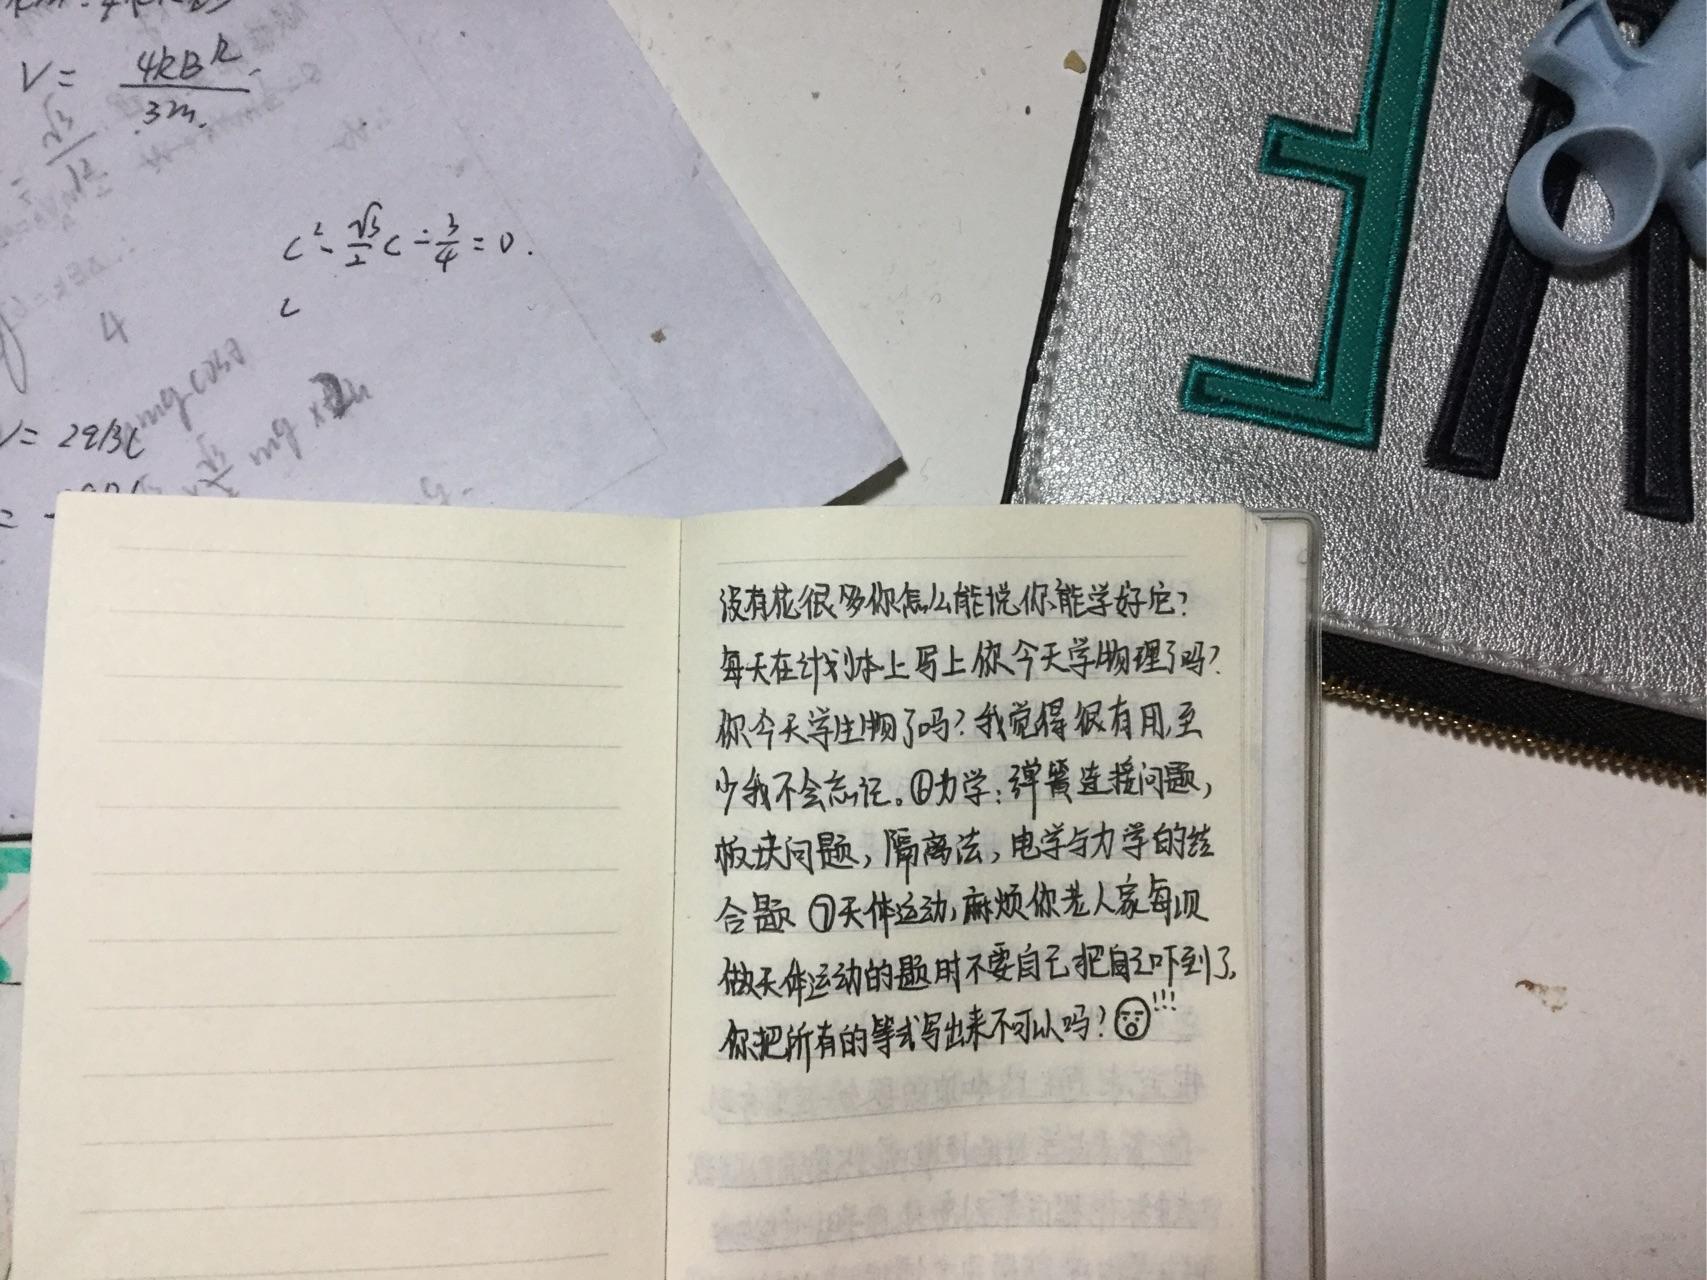 V = 4kBR / 3m.
c² - √3/2 c - 3/4 = 0.
c
4
mg cosθ
V = 2qBL
没有花很多你怎么能说你能学好它？
每天在计划本上写上你今天学物理了吗？
你今天学生物了吗？我觉得很有用，至
少我不会忘记。⑥力学：弹簧连接问题，
板块问题，隔离法，电学与力学的结
合题 ⑦天体运动，麻烦你老人家每次
做天体运动的题时不要自己把自己吓到了。
你把所有的等式写出来不可以吗？!!!